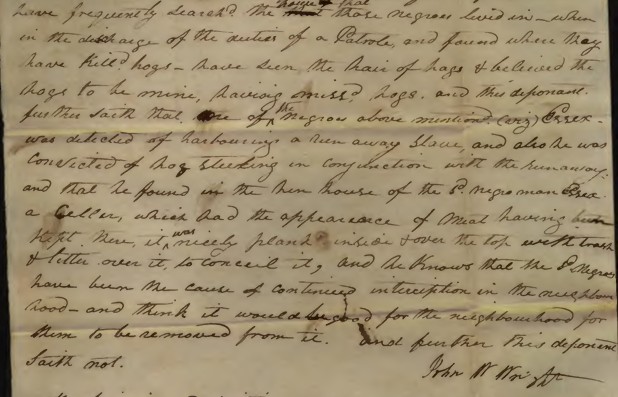 house that
have frequently search'd the those negroes lived in - when
in the discharge of the duties of a Patrole, and found where they
have kill'd hogs - have seen the hair of hogs & believed the
hogs to be mine, having miss'd hogs. and this deponant
further saith that one of the negroes above mention'd (viz) Essex -
was detected of harbouring a run away slave, and also he was
Convicted of hog steeling in conjunction with the runaway -
and that he found in the hen house of the sd. negro man Essex
a Celler, which had the appearance of meat having been
kept there, it was nicely plank'd inside & over the top with trash
& litter over it, to conceil it, and he knows that the sd. Negroes
have been the cause of continued interception in the neighbour
hood - and think it would be good for the neighbourhood for
them to be removed from it. and further this deponent
saith not.
John W Wright